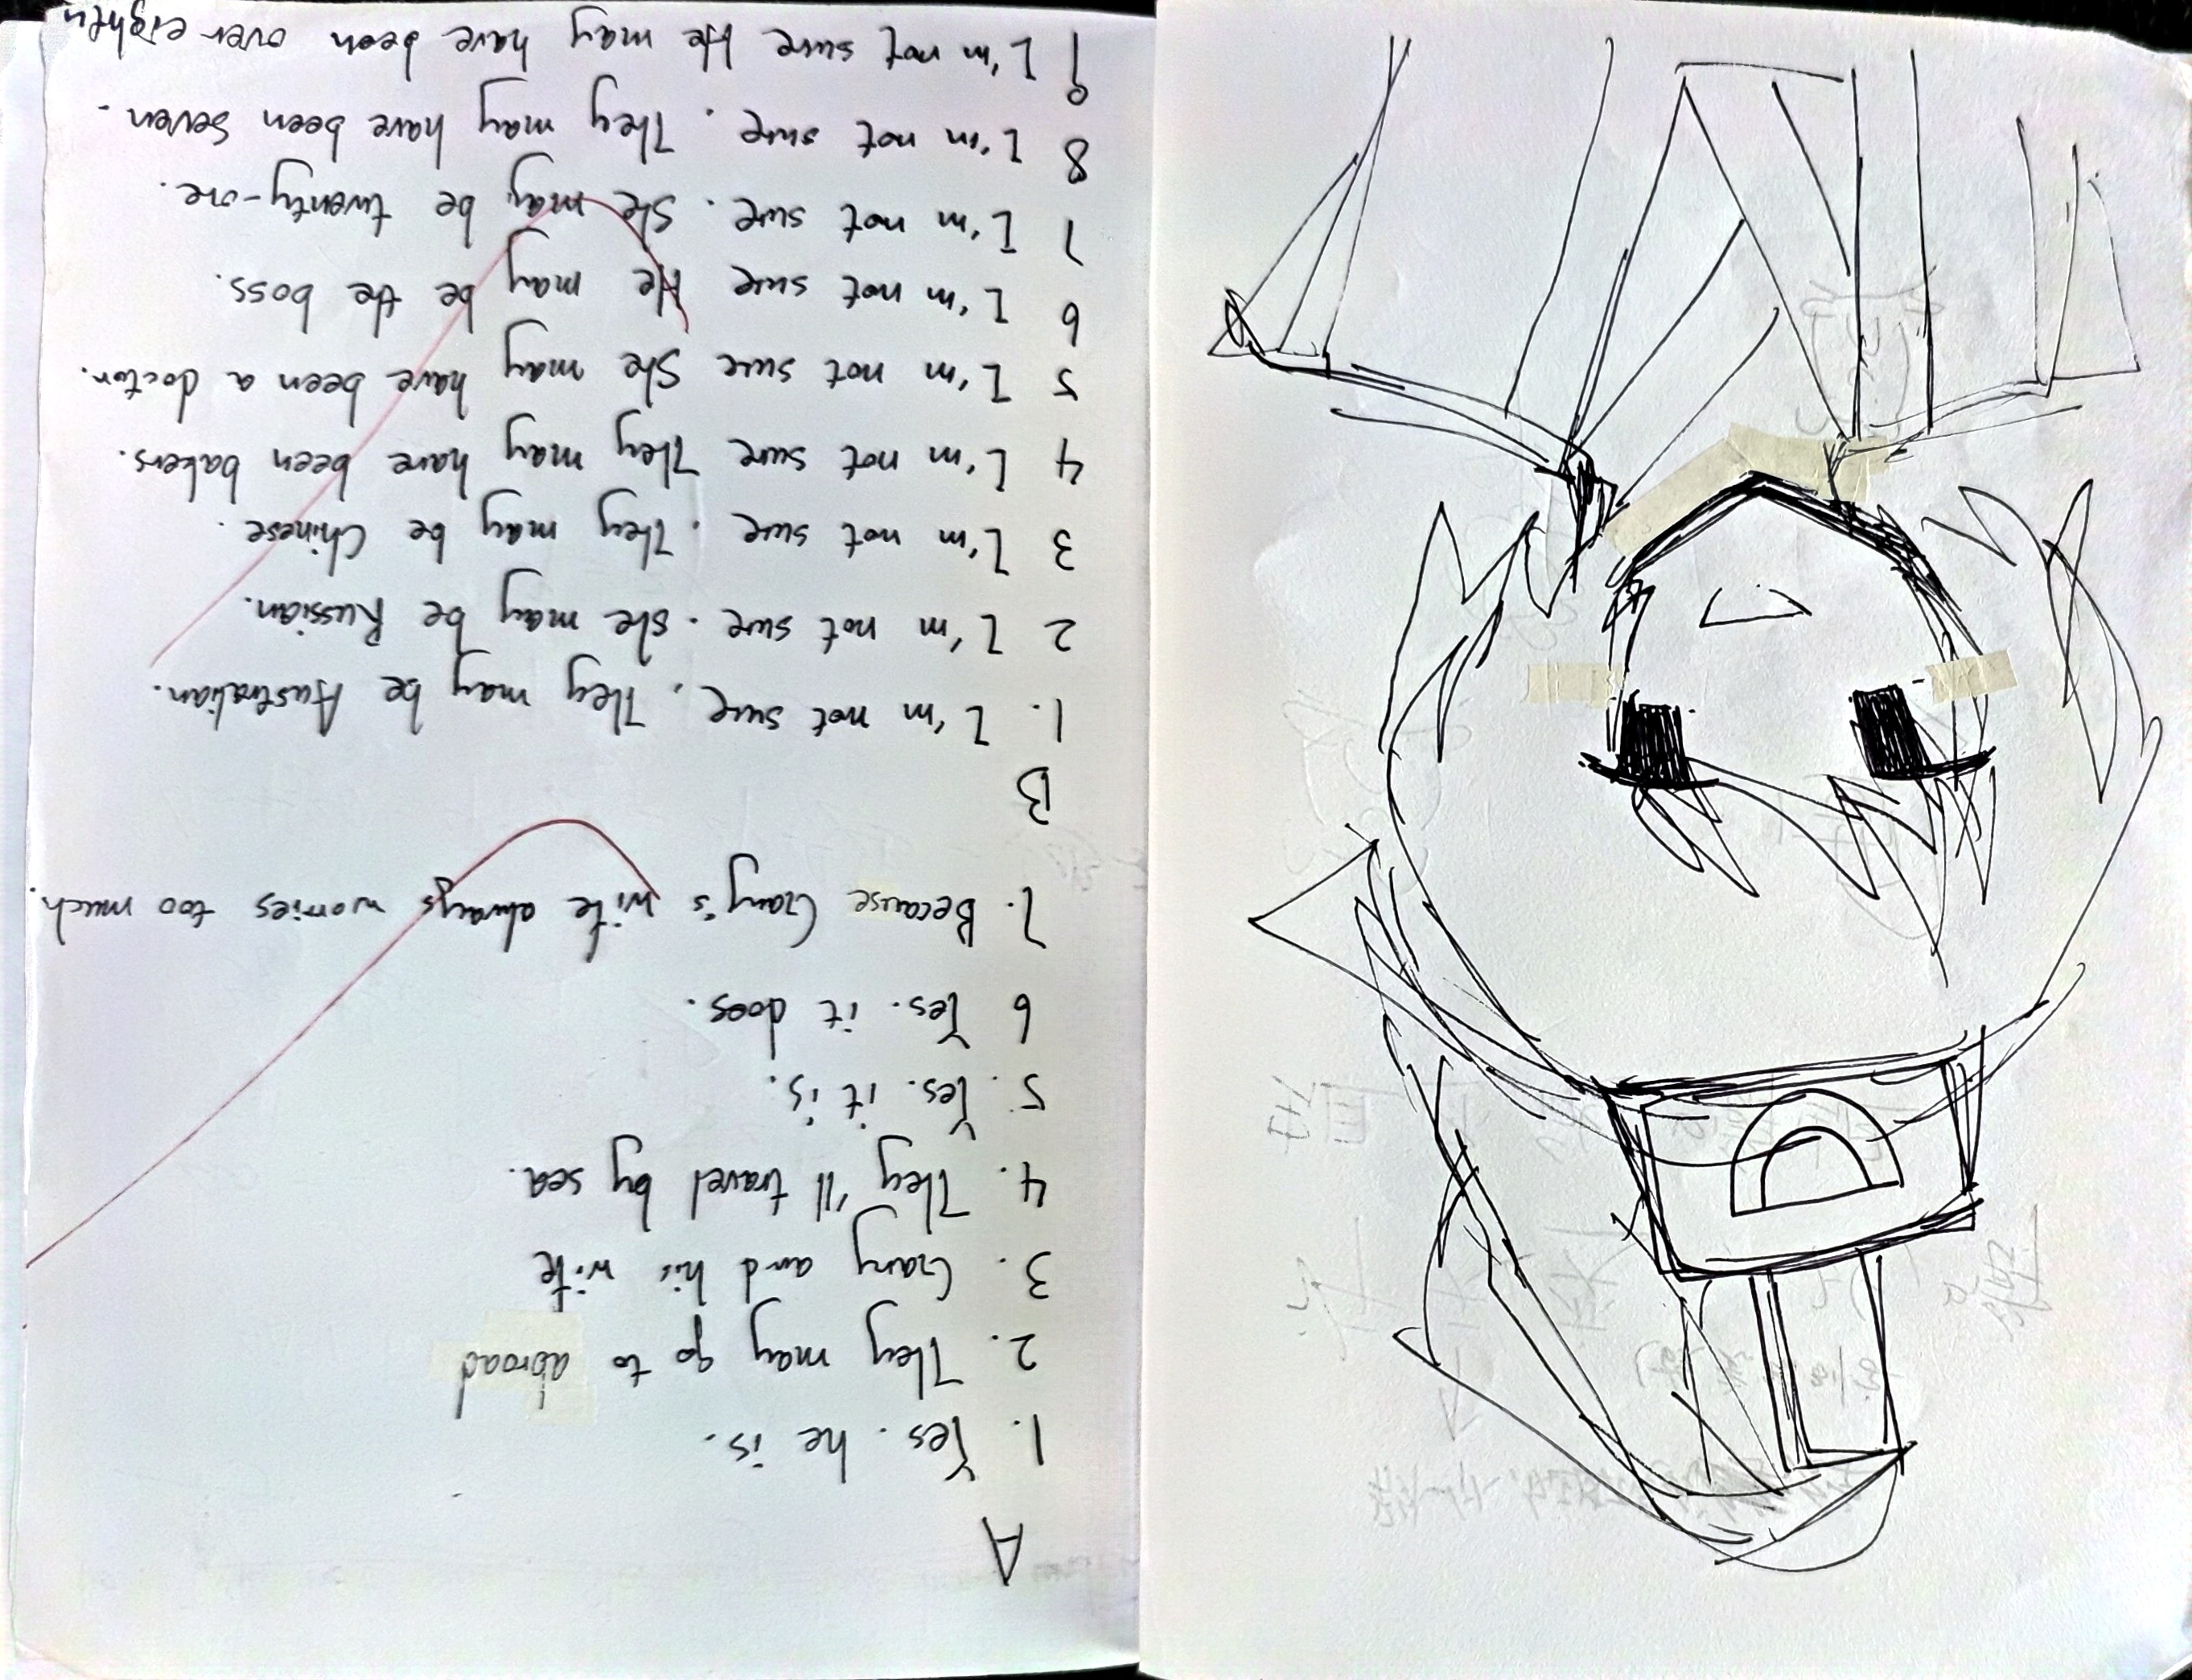 A
1. Yes. he is.
2. They may go to abroad
3. Gary and his wife
4. They'll travel by sea.
5. Yes. it is.
6 Yes. it does.
7. Because Gary's wife always worries too much.
B
1. I'm not sure. They may be Australian.
2 I'm not sure. She may be Russian.
3 I'm not sure. They may be Chinese.
4 I'm not sure They may have been bakers.
5 I'm not sure She may have been a doctor.
6 I'm not sure He may be the boss.
7 I'm not sure. She may be twenty-one.
8 I'm not sure. They may have been seven.
9 I'm not sure He may have been over eighty